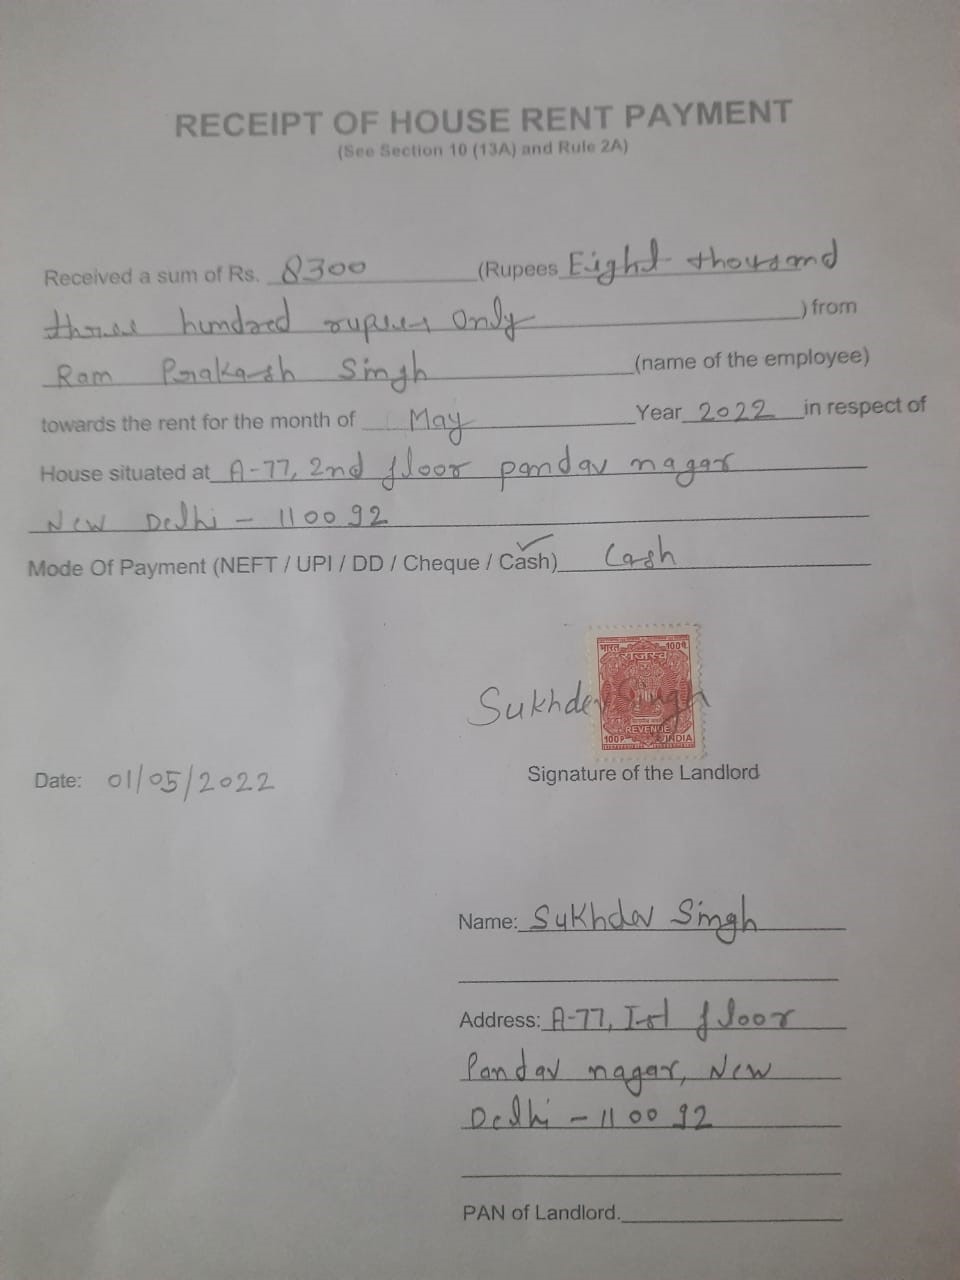 RECEIPT OF HOUSE RENT PAYMENT
(See Section 10 (13A) and Rule 2A)
Received a sum of Rs. 8300 (Rupees Eight thousand
three hundred rupees Only ) from
Ram Prakash Singh (name of the employee)
towards the rent for the month of May Year 2022 in respect of
House situated at A-77, 2nd floor pandav nagar
New Delhi - 110092
Mode Of Payment (NEFT / UPI / DD / Cheque / Cash) Cash
भारत 100प
राजस्व
Sukhdev Singh
REVENUE
100P INDIA
Signature of the Landlord
Date: 01/05/2022
Name: Sukhdev Singh
Address: A-77, Ist floor
Pandav nagar, New
Delhi - 110092
PAN of Landlord.